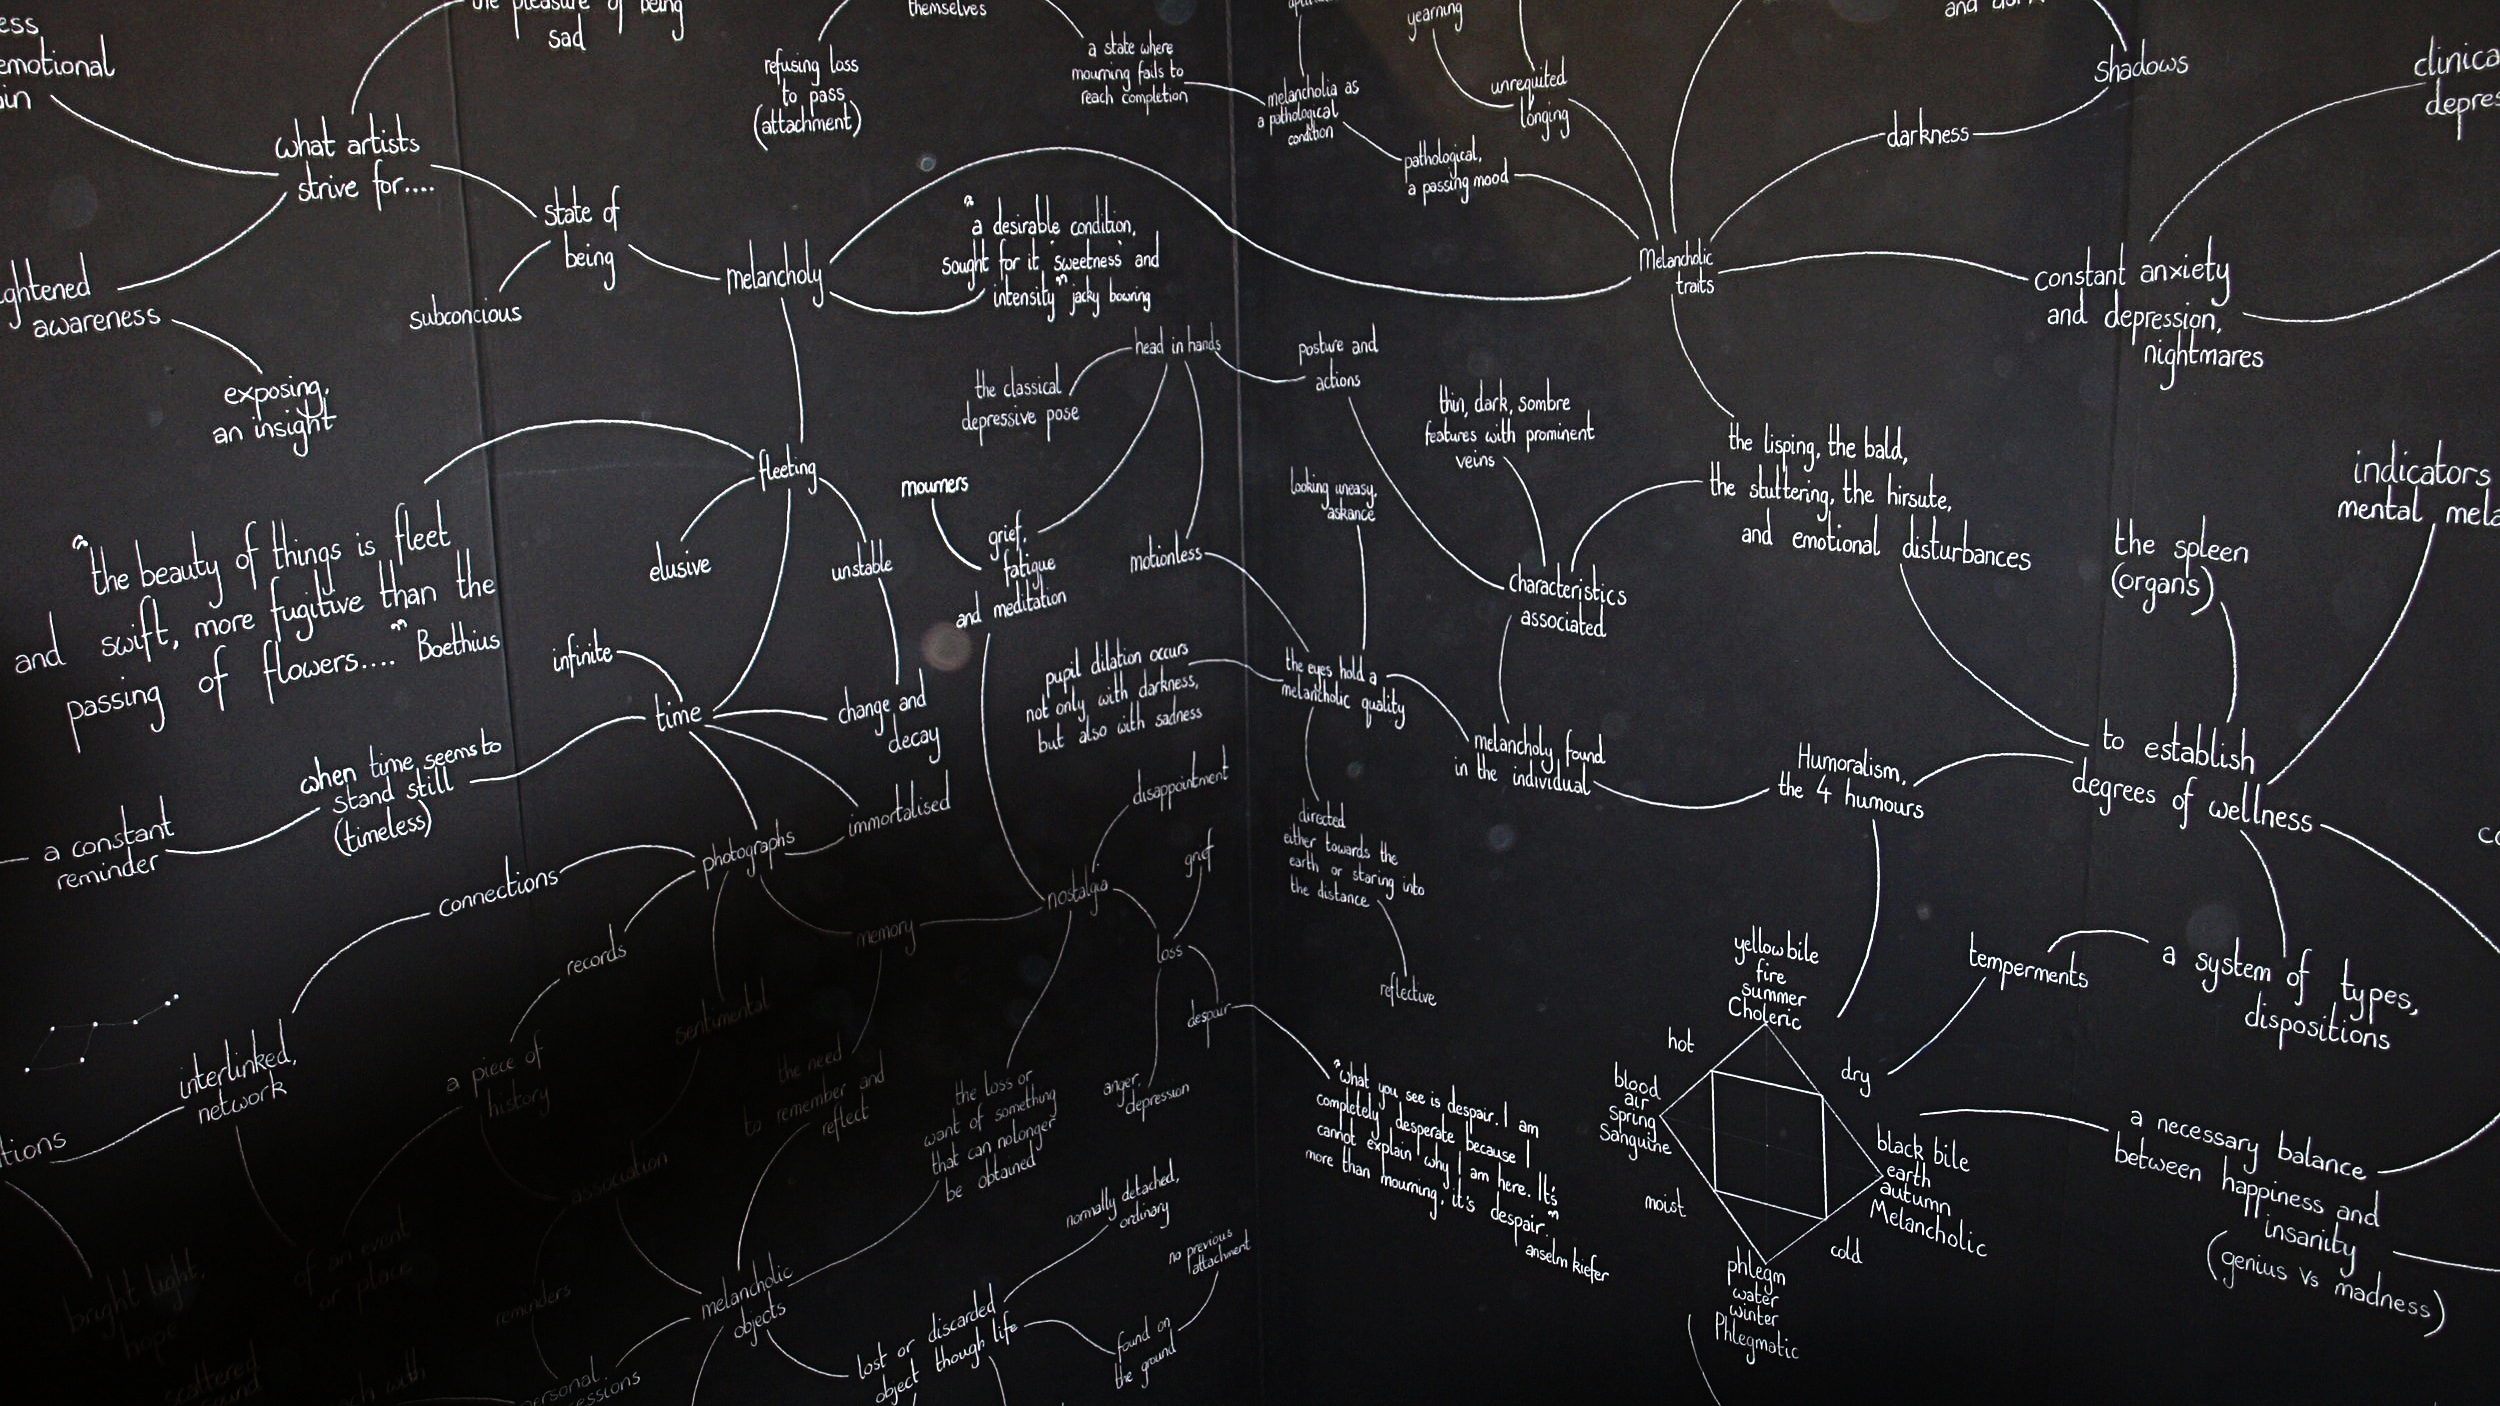 emotional
the pleasure of being
sad
themselves
refusing loss
to pass
(attachment)
a state where
mourning fails to
reach completion
melancholia as
a pathological
condition
yearning
unrequited
longing
pathological,
a passing mood
shadows
darkness
what artists
strive for....
state of
being
subconcious
awareness
exposing,
an insight
melancholy
"a desirable condition,
sought for it 'sweetness' and
intensity" jacky bowring
Melancholic
traits
constant anxiety
and depression,
nightmares
head in hands
the classical
depressive pose
posture and
actions
thin, dark, sombre
features with prominent
veins
the lisping, the bald,
the stuttering, the hirsute,
and emotional disturbances
indicators
mental
fleeting
elusive
unstable
mourners
grief,
fatigue
and meditation
motionless
looking uneasy,
askance
characteristics
associated
the spleen
(organs)
"the beauty of things is fleet
and swift, more fugitive than the
passing of flowers...." Boethius
infinite
time
change and
decay
pupil dilation occurs
not only with darkness,
but also with sadness
the eyes hold a
melancholic quality
melancholy found
in the individual
Humoralism,
the 4 humours
to establish
degrees of wellness
when time seems to
stand still
(timeless)
a constant
reminder
photographs
immortalised
connections
records
memory
nostalgia
disappointment
grief
loss
despair
directed
either towards the
earth or staring into
the distance
reflective
interlinked,
network
a piece of
history
sentimental
the need
to remember and
reflect
the loss or
want of something
that can nolonger
be obtained
anger,
depression
"what you see is despair. I am
completely desperate because I
cannot explain why I am here. It's
more than mourning, it's despair."
anselm kiefer
yellow bile
fire
summer
Choleric
hot
dry
blood
air
Spring
Sanguine
black bile
earth
autumn
Melancholic
moist
cold
phlegm
water
winter
Phlegmatic
temperments
a system of types,
dispositions
a necessary balance
between happiness and
insanity
(genius vs madness)
association
of an event
or place
bright light,
hope
reminders
melancholic
objects
normally detached,
ordinary
no previous
attachment
lost or discarded
object though life
found on
the ground
scattered